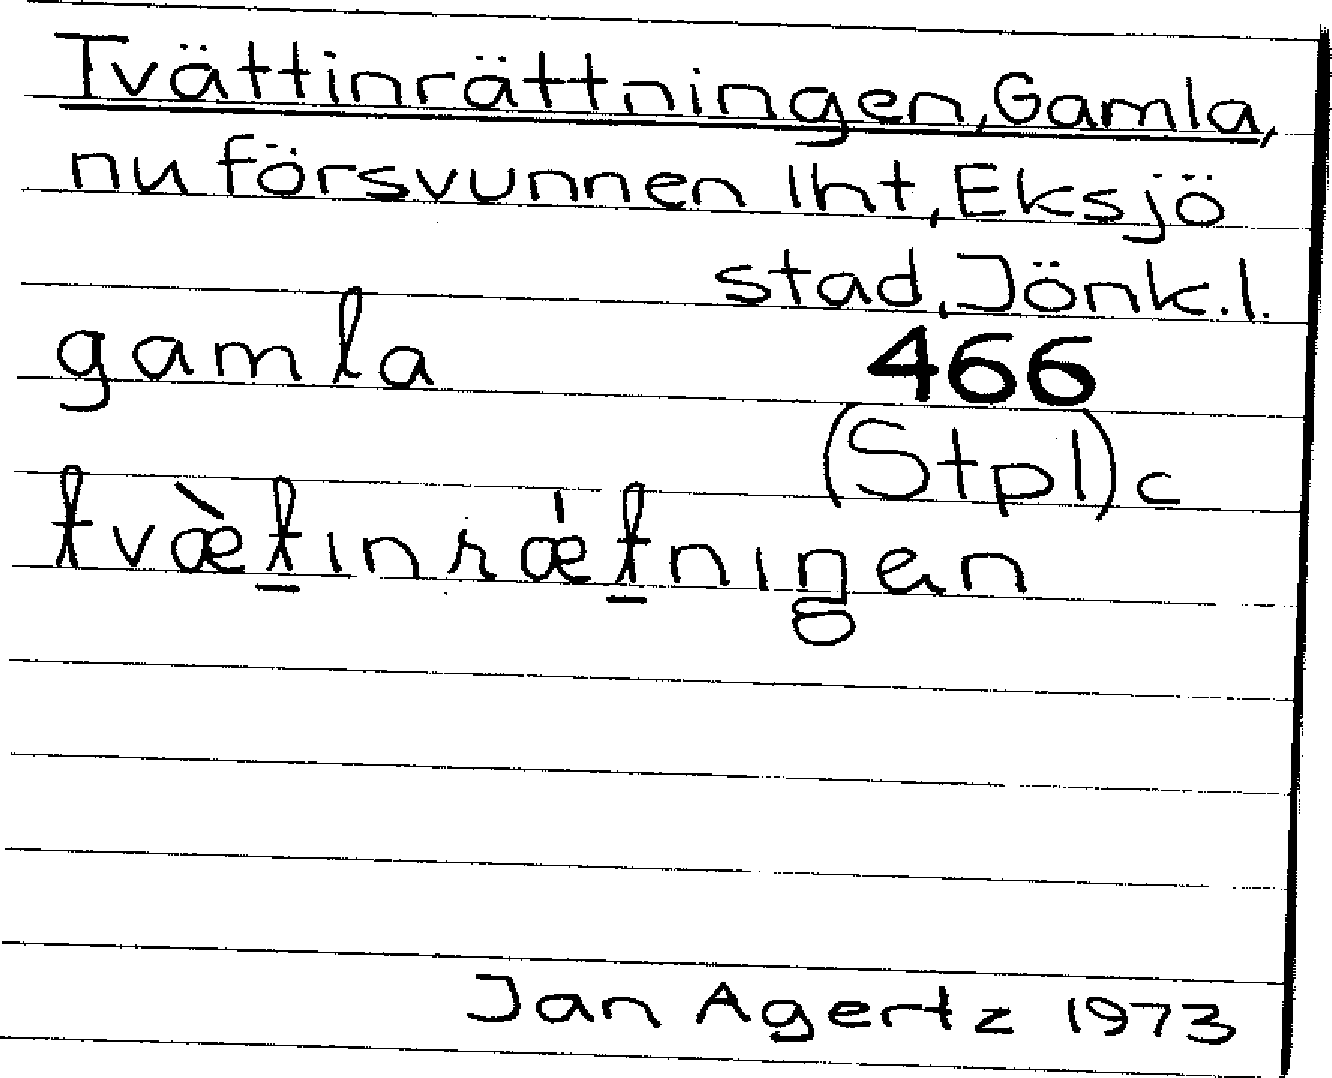 Tvättinrättningen, Gamla,
nu försvunnen lht, Eksjö
stad, Jönk.l.
gamla 466
(Stpl) c
tvæ̀t̠inrǽt̠niŋen
Jan Agertz 1973